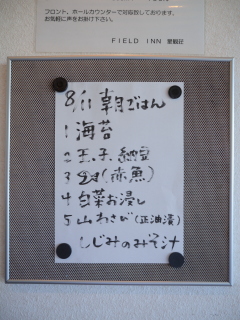 フロント、ホールカウンターで対応致しております。
お気軽に声をお掛け下さい。
FIELD INN 里観荘
8/11 朝ごはん
1 海苔
2 玉子、納豆
3 (赤魚)
4 白菜お浸し
5 山わさび(正油漬)
しじみのみそ汁